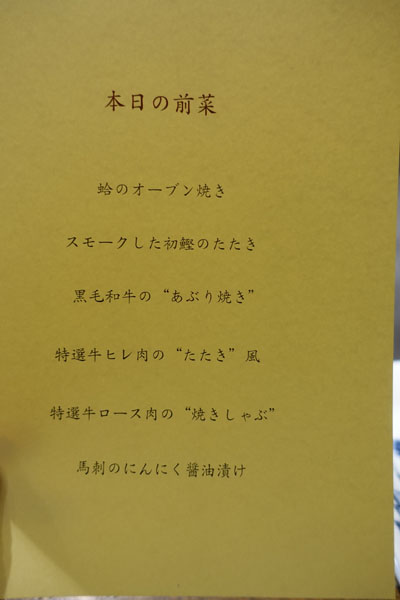 本日の前菜
蛤のオーブン焼き
スモークした初鰹のたたき
黒毛和牛の“あぶり焼き”
特選牛ヒレ肉の“たたき”風
特選牛ロース肉の“焼きしゃぶ”
馬刺のにんにく醤油漬け